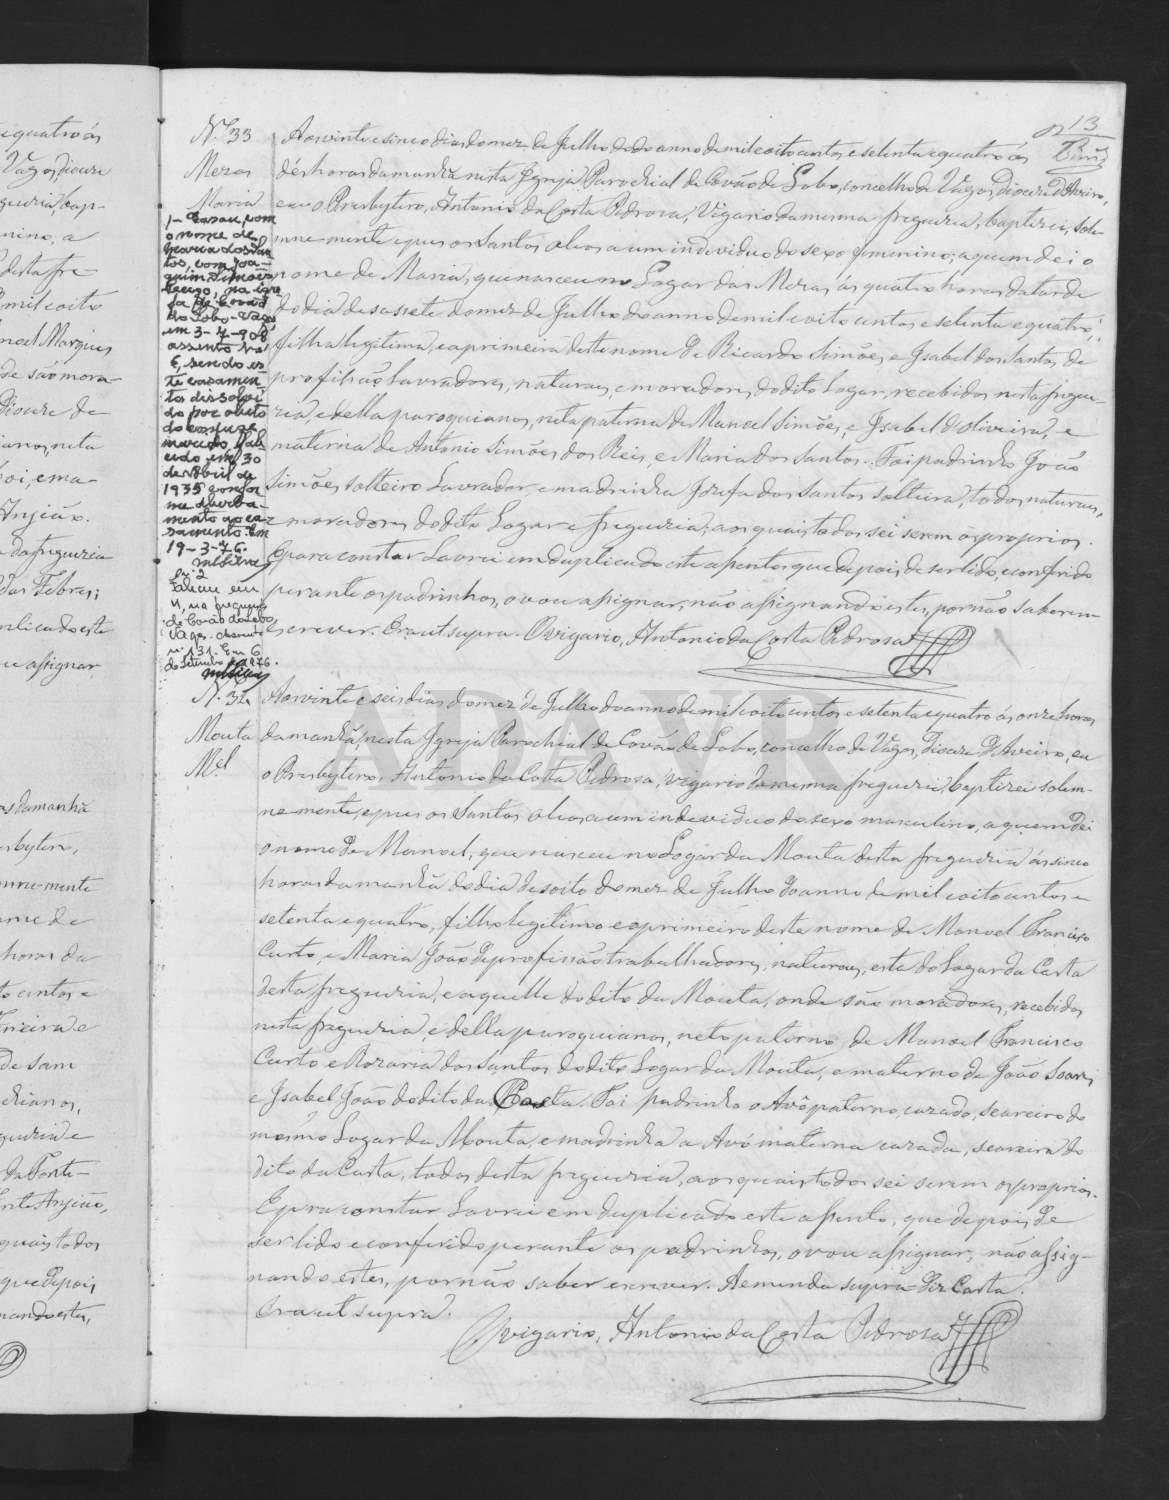 13
N.º 33
Mezas
Maria
Aos vinte e sinco dias do mez de Julho do do anno de mil eoito centos e setenta e quatro ás
dés horas da manhã nesta Igreja Parochial de Covão de Lobo, concelho de Vágos, Diocese d'Aveiro,
eu o Presbytero, Antonio da Costa Pedrosa, Vigario da mesma freguezia, baptizei, sole-
mne mente e pus os Santos oleos a um individuo do sexo femenino, a quem dei o
nome de Maria, que nasceu no Logar das Mezas, ás quatro horas da tarde
do dia desassete do mez de Julho do anno de mil e oito centos e setenta e quatro,
filha legitima, e a primeira deste nome de Ricardo Simões, e Isabel dos Santos, de
profissão Lavradores, naturaes, e moradores, do dito Logar, recebidos nesta fregue-
zia, e della paroquianos, neta paterna de Manoel Simões, e Isabel d'Oliveira, e
materna de Antonio Simões dos Reis, e Maria dos Santos. Foi padrinho João
Simões, solteiro Lavrador, e madrinha Josefa dos Santos solteira, todos naturaes,
e moradores do dito Logar e freguezia, aos quais todos sei serem os proprios.
E para constar Lavrei em duplicado este assento, que depois, de ser lido, e conferido
perante os padrinhos, o vou assignar, não assignando estes, por não saberem
escrever. Era ut supra. O vigario, Antonio da Costa Pedrosa
1- Casou, com
o nome de
Maria dos San
tos, com Joa-
quim Simões
na igre
ja de Covão
do Lobo - Vagos
em 3-7-908,
assento nº
6, sendo es-
te casamen
to dissolvi
do por obito
do conjuge
marido, fale-
cido em 30
de Abril de
1935 confor
me averba-
mento ao ca-
samento. Em
19-3-76.
nº 2
Faleceu em
na freguesia
de Covão do Lobo
Vagos. Assento
nº 131. Em 6
de Setembro de 1976.
N.º 34
Mouta
M.el
Aos vinte e seis dias do mez de Julho do anno de mil eoito centos e setenta e quatro ás onze horas
da manhã, nesta Igreja Parochial de Covão de Lobo, concelho de Vágos, Diocese d'Aveiro, eu
o Presbytero, Antonio da Costa Pedrosa, Vigario da mesma freguezia, baptizei solem-
ne mente, e pus os Santos oleos a um individuo do sexo masculino, a quem dei
o nome de Manoel, que nasceu no Logar da Mouta desta freguezia ás sinco
horas da manhã do dia desoito do mez de Julho do anno de mil eoito centos e
setenta e quatro, filho legitimo e o primeiro deste nome de Manoel Francisco
Curto, e Maria João de profissão trabalhadores, naturaes, esta do Logar da Costa
desta freguezia, e aquelle do dito da Mouta, onde são moradores, recebidos
nesta freguezia, e della paroquianos, neto paterno, de Manoel Francisco
Curto e Rozaria dos Santos do dito Logar da Mouta, e materno de João Soares
e Isabel João do dito da Costa. Foi padrinho o Avô paterno, cazado, seareiro do
mesmo Logar da Mouta, e madrinha a Avó materna cazada, seareira do
dito da Costa, todos desta freguezia, aos quais todos sei serem os proprios.
E para constar Lavrei em duplicado este assento, que depois de
ser lido e conferido perante os padrinhos, o vou assignar, não assig-
nando estes, por não saber escrever. A emenda supra diz Costa.
Era ut supra.
O vigario, Antonio da Costa Pedrosa
ADAVR